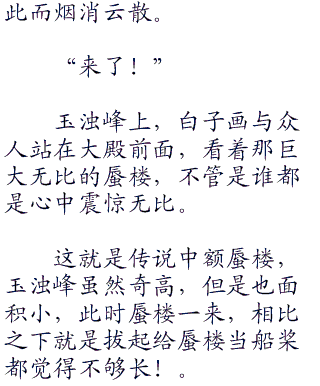 此而烟消云散。
“来了！”
玉浊峰上，白子画与众
人站在大殿前面，看着那巨
大无比的蜃楼，不管是谁都
是心中震惊无比。
这就是传说中额蜃楼，
玉浊峰虽然奇高，但是也面
积小，此时蜃楼一来，相比
之下就是拔起给蜃楼当船桨
都觉得不够长！。